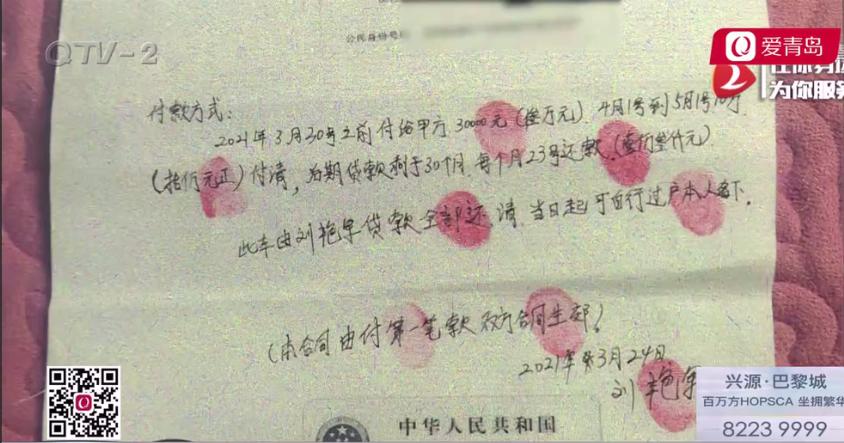 公民身份号码
QTV-2
爱青岛
为你服务
付款方式：
2021年3月30号之前付给甲方30000元（叁万元）4月1号到5月1号10万
元正）付清，后期贷款剩于30个月，每个月23号还款
此车由刘艳 贷款全部还清，当日起可自行过户本人名下。
（本合同由付第一笔款双方合同生
2021年 3月24日
刘艳
中华人民共和国
兴源·巴黎城
百万方HOPSCA 坐拥繁华
8223 9999